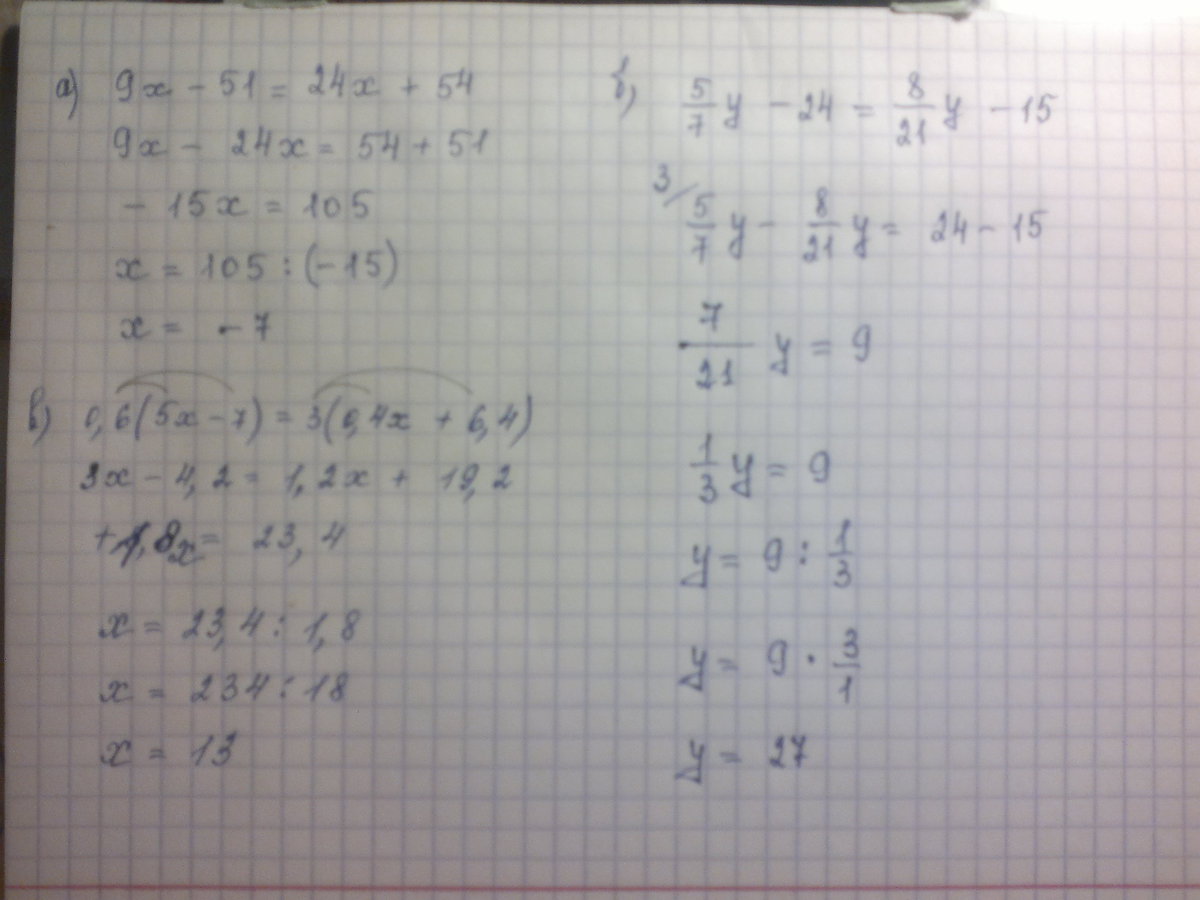 а) 9x - 51 = 24x + 54
9x - 24x = 54 + 51
- 15x = 105
x = 105 : (-15)
x = - 7
в) 0,6(5x - 7) = 3(0,4x + 6,4)
3x - 4,2 = 1,2x + 19,2
+1,8x = 23,4
x = 23,4 : 1,8
x = 234 : 18
x = 13
б) 5/7 y - 24 = 8/21 y - 15
3/ 5/7 y - 8/21 y = 24 - 15
7/21 y = 9
1/3 y = 9
y = 9 : 1/3
y = 9 · 3/1
y = 27